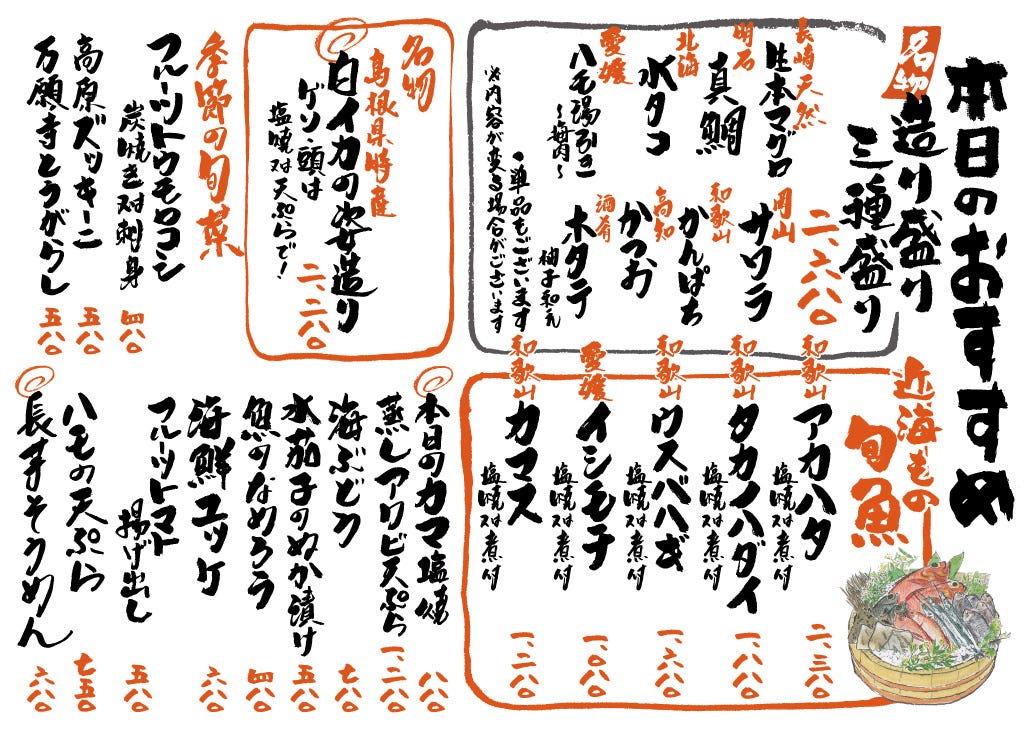 本日のおすすめ
名物
造り盛り
三種盛り
二、六八〇
長崎 天然
生本マグロ
明石
真鯛
北海
水タコ
愛媛
ハモ湯引き
～梅肉～
岡山
サワラ
和歌山
かんぱち
高知
かつお
酒肴
ホタテ
柚子和え
・単品もございます
※内容が変る場合がございます
名物
島根県特産
白イカの姿造り
ゲソ・頭は
塩焼 又は 天ぷらで！
二、二八〇
季節の旬菜
フルーツトウモロコシ
炭焼き 又は 刺身
四八〇
高原ズッキーニ
五八〇
万願寺とうがらし
五八〇
近海もの
旬魚
和歌山
アカハタ
塩焼 又は 煮付
二、三八〇
和歌山
タカノハダイ
塩焼 又は 煮付
一、八八〇
和歌山
ウスバハギ
塩焼 又は 煮付
一、六八〇
愛媛
イシモチ
塩焼 又は 煮付
一、〇八〇
和歌山
カマス
塩焼 又は 煮付
一、二八〇
本日のカマ塩焼
八八〇
蒸しアワビ天ぷら
一、二八〇
海ぶどう
七八〇
水茄子のぬか漬け
五八〇
魚のなめろう
四八〇
海鮮ユッケ
六八〇
フルーツトマト
揚げ出し
五八〇
ハモの天ぷら
七五〇
長芋そうめん
六八〇